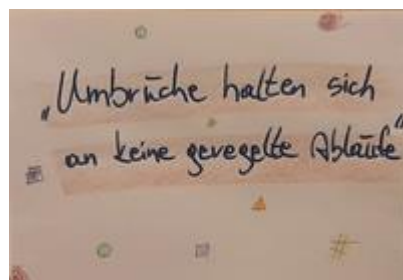 „Umbrüche halten sich
an keine geregelte Abläufe"